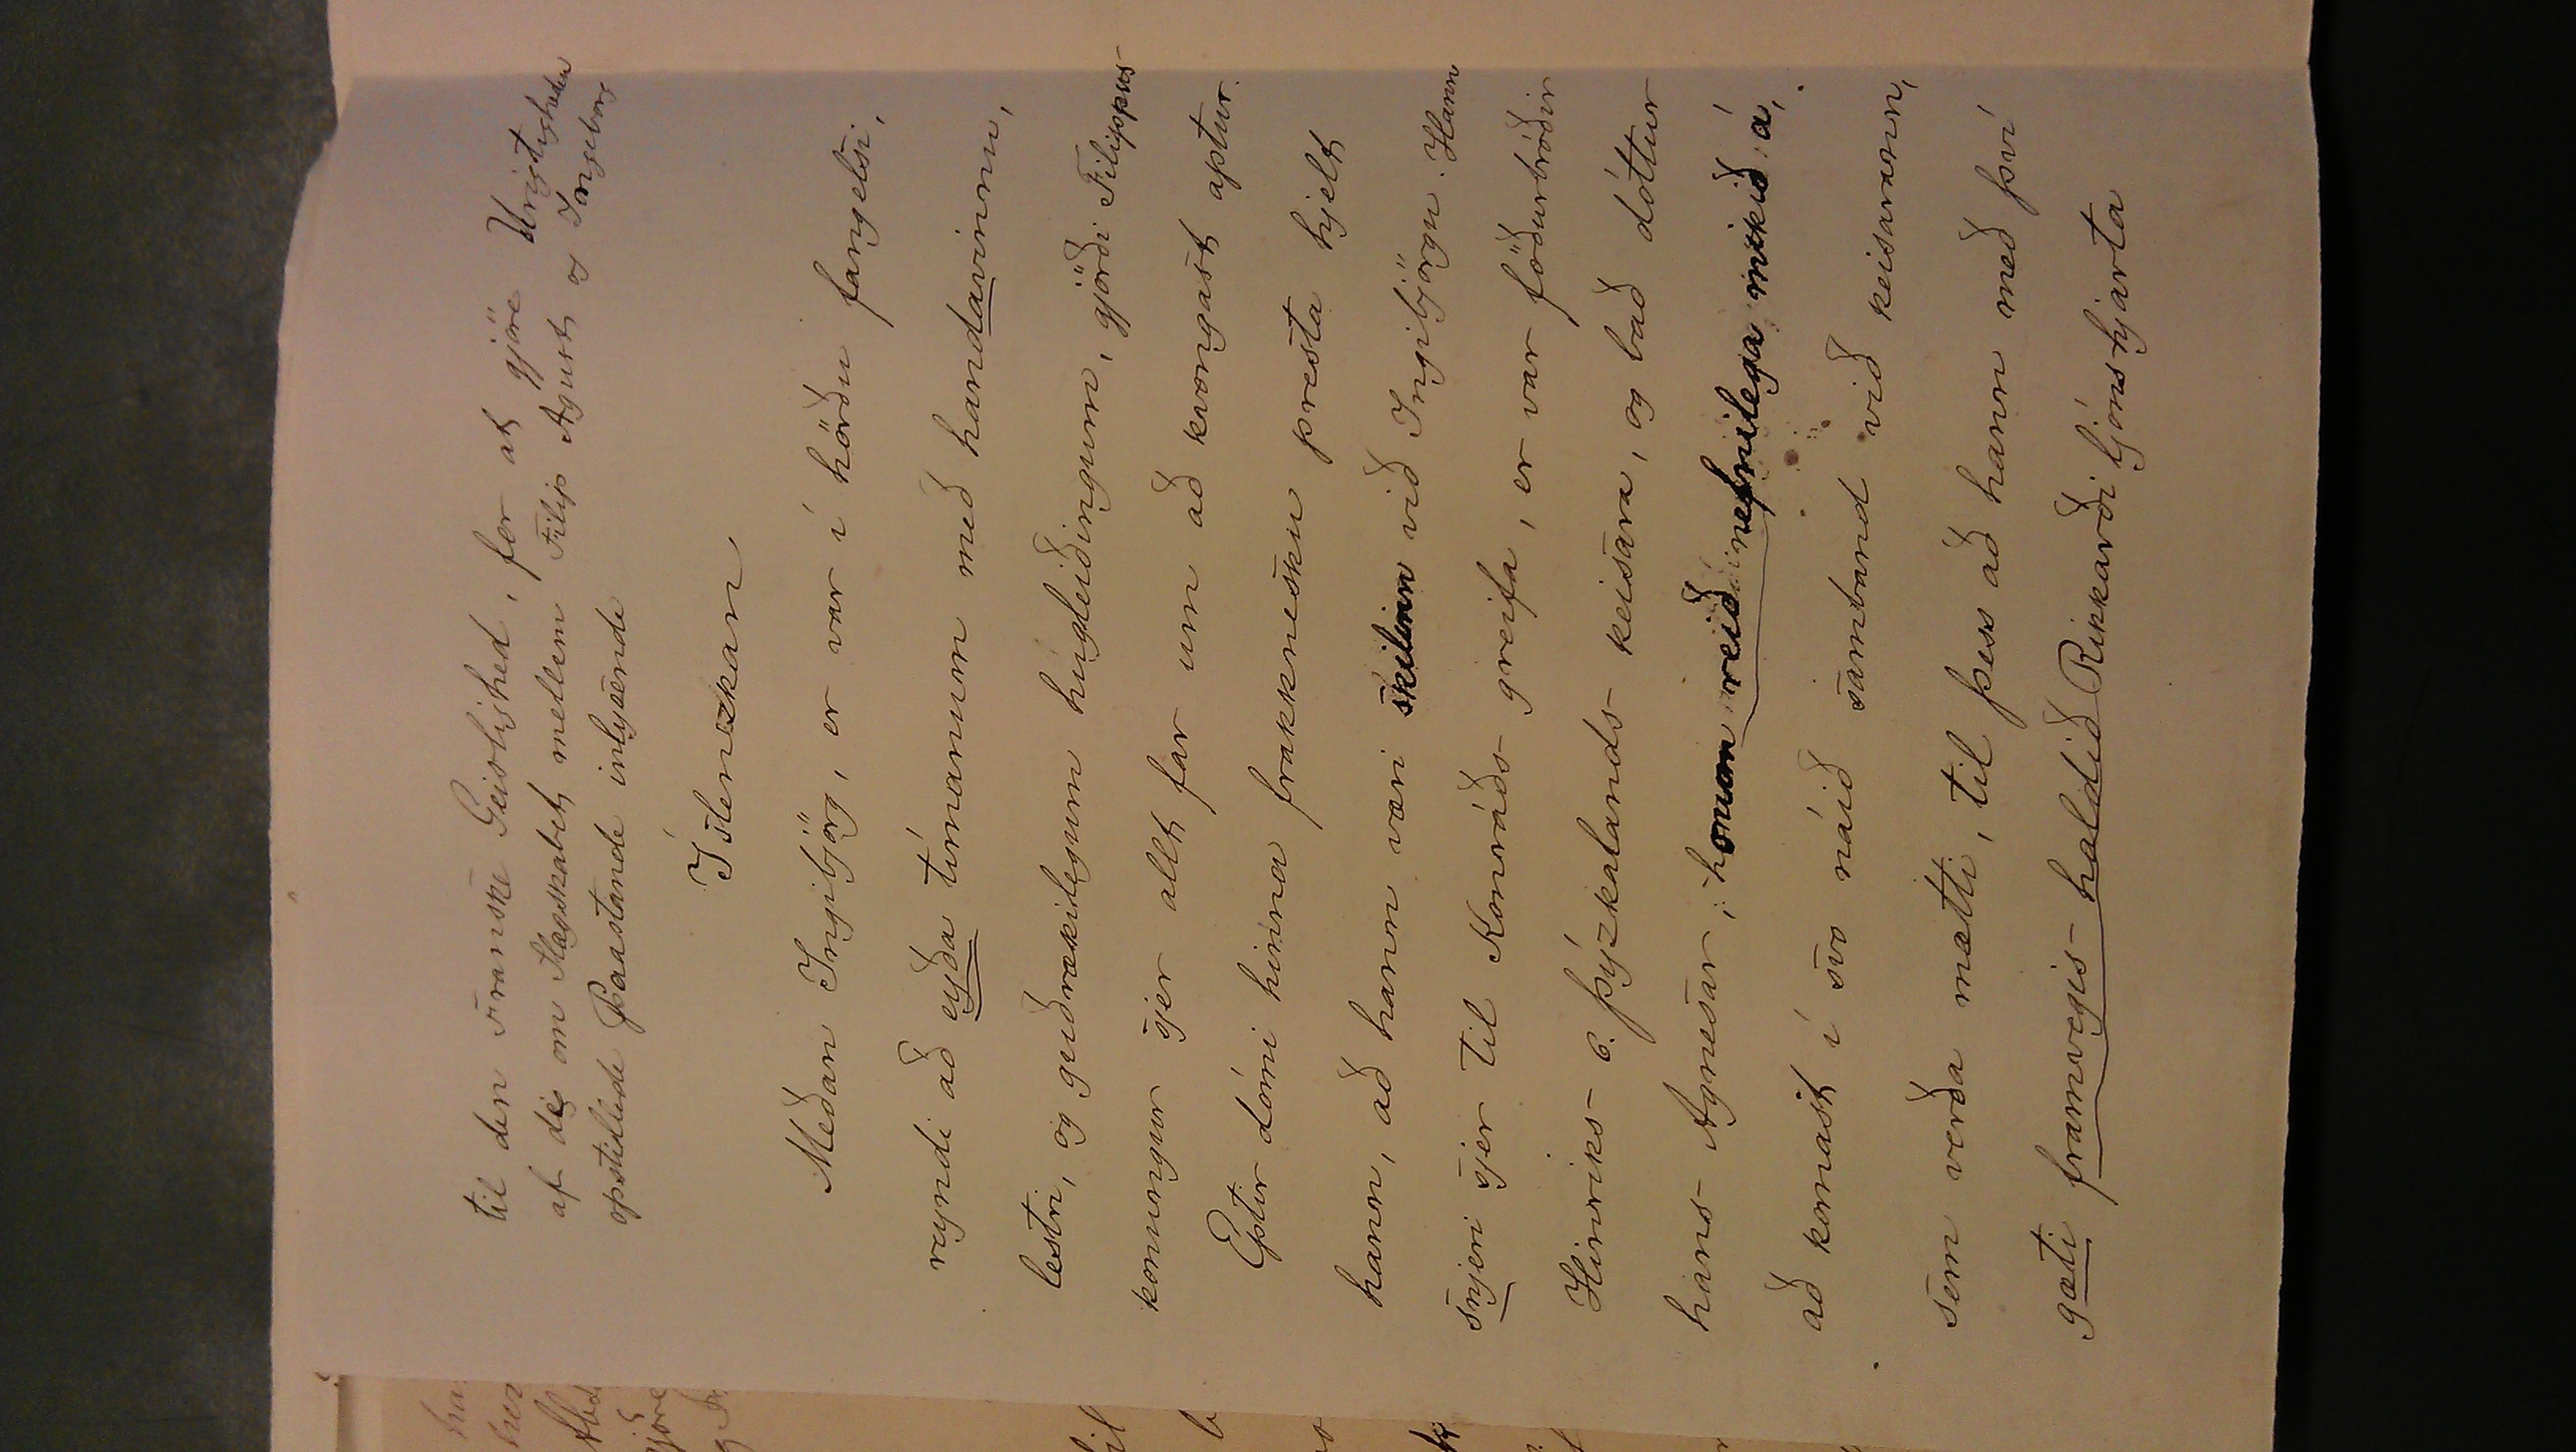 til den Franske Geistlighed, for at gjöre Urigtigheden
af de om Slægskabet mellem Filip August og Ingeborg
opstillede Paastande inlysende
Íslenzkan
Meðan Ingibjörg, er var í hörðu fangelsi,
reyndi að eyða tímanum með handavinnu,
lestri, og guðrækilegum hugleiðingum, gjörði Filippus
konungur sjer allt far um að kvongast aptur.
Eptir dómi hinna frakknesku presta hjelt
hann, að hann væri skilinn við Ingibjörgu. Hann
snjeri sjer til Konráðs greifa, er var föðurbróðir
Hinriks 6. þýzkalands keisara, og bað dóttur
hans Agnesar; honum reið nefnilega mikið á,
að komast í svo náið samband við keisarann,
sem verða mætti, til þess að hann með því
gæti framvegis haldið Rikkarði ljónshjarta